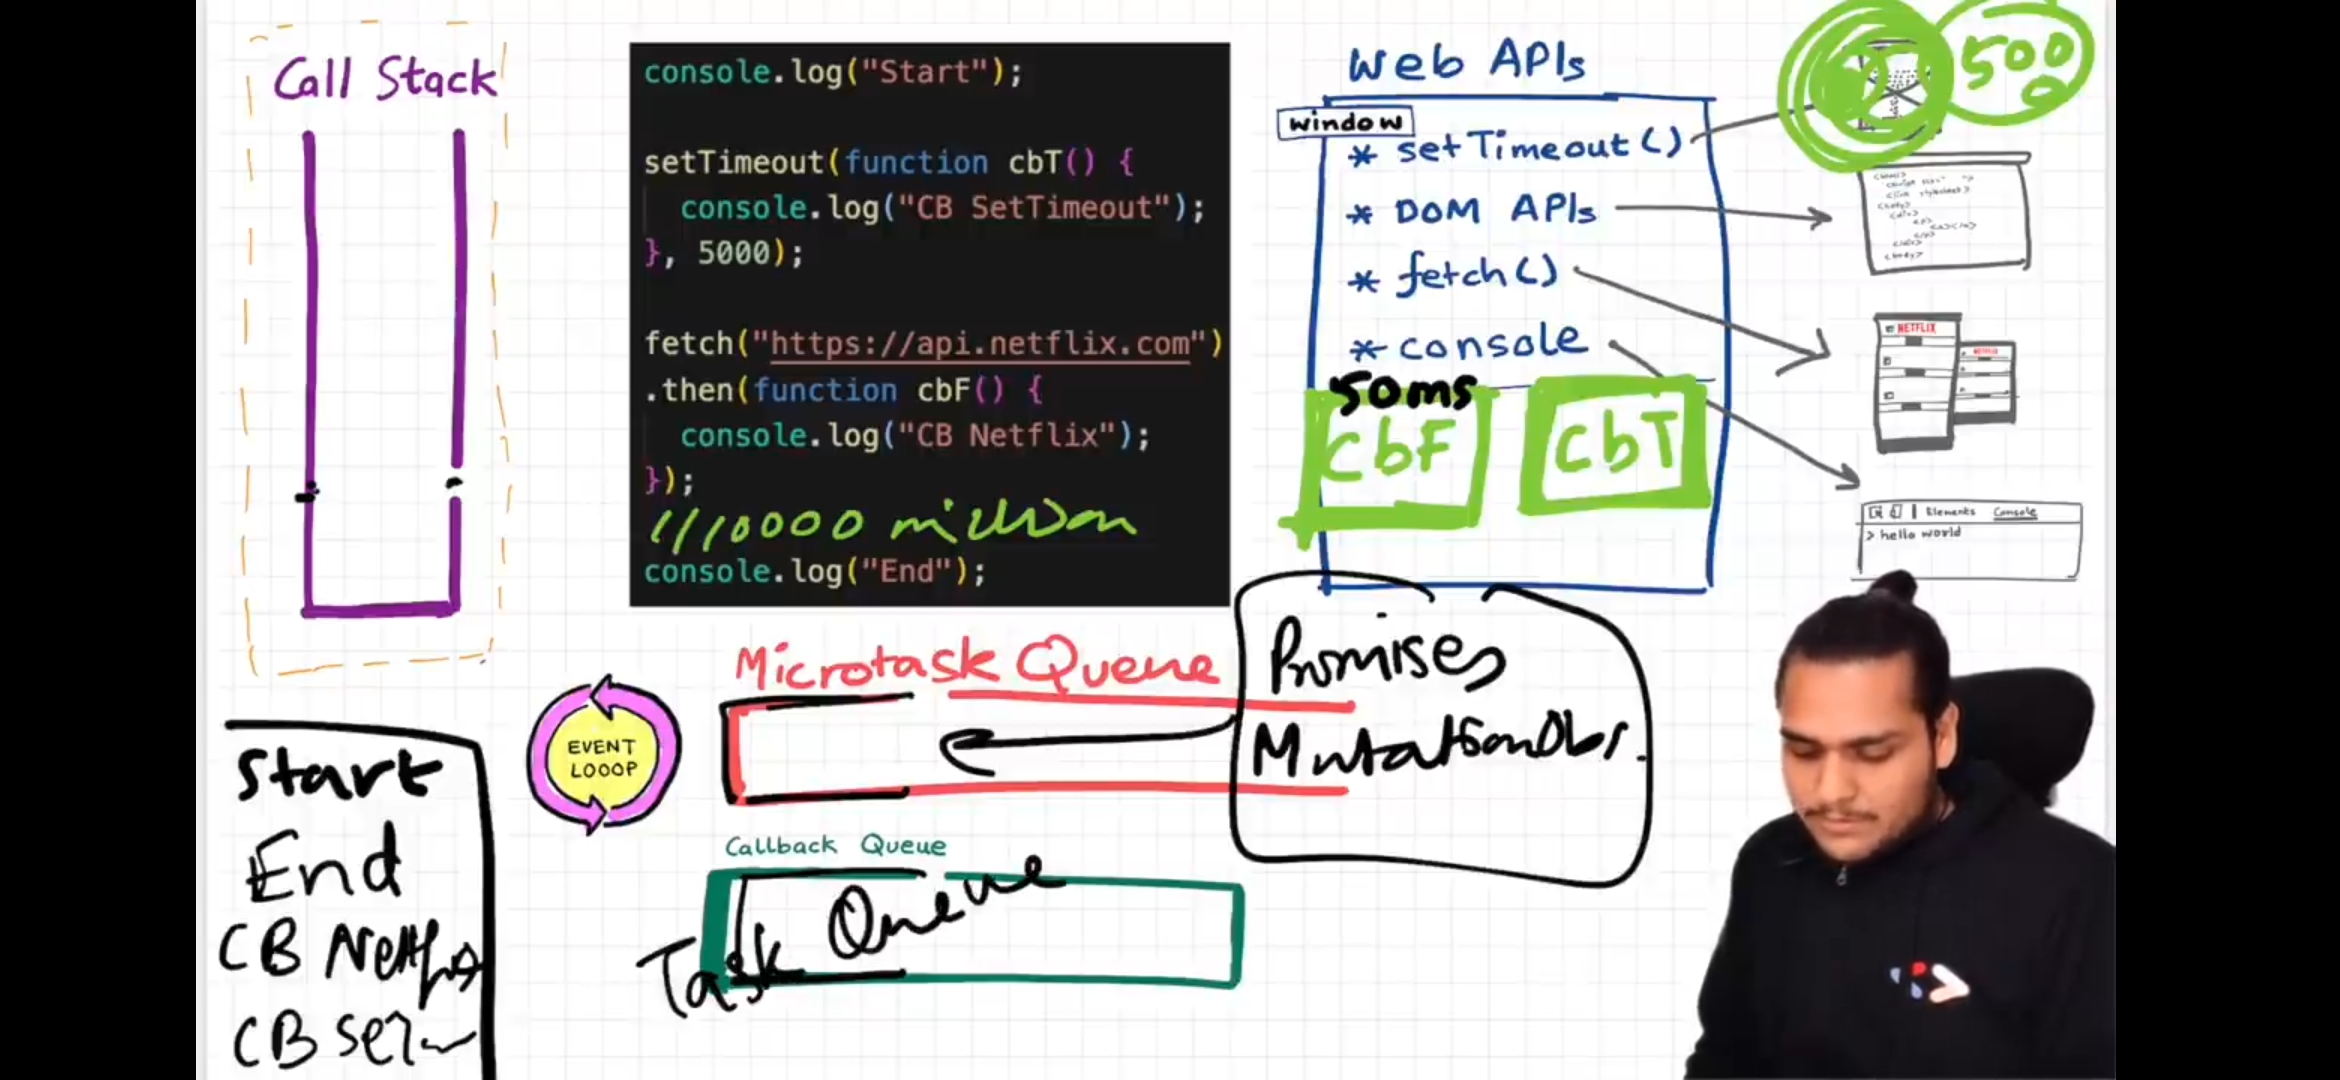 Call Stack
console.log("Start");
setTimeout(function cbT() {
console.log("CB SetTimeout");
}, 5000);
fetch("https://api.netflix.com")
.then(function cbF() {
console.log("CB Netflix");
});
10000 million
console.log("End");
Web APIs
window
* setTimeout()
* DOM APIs
* fetch()
* console
50ms
CbF
CbT
500
NETFLIX
NETFLIX
Elements Console
> hello world
Microtask Queue
Promises
MutationObs.
EVENT
LOOOP
Callback Queue
Task Queue
Start
End
CB Netflix
CB Set